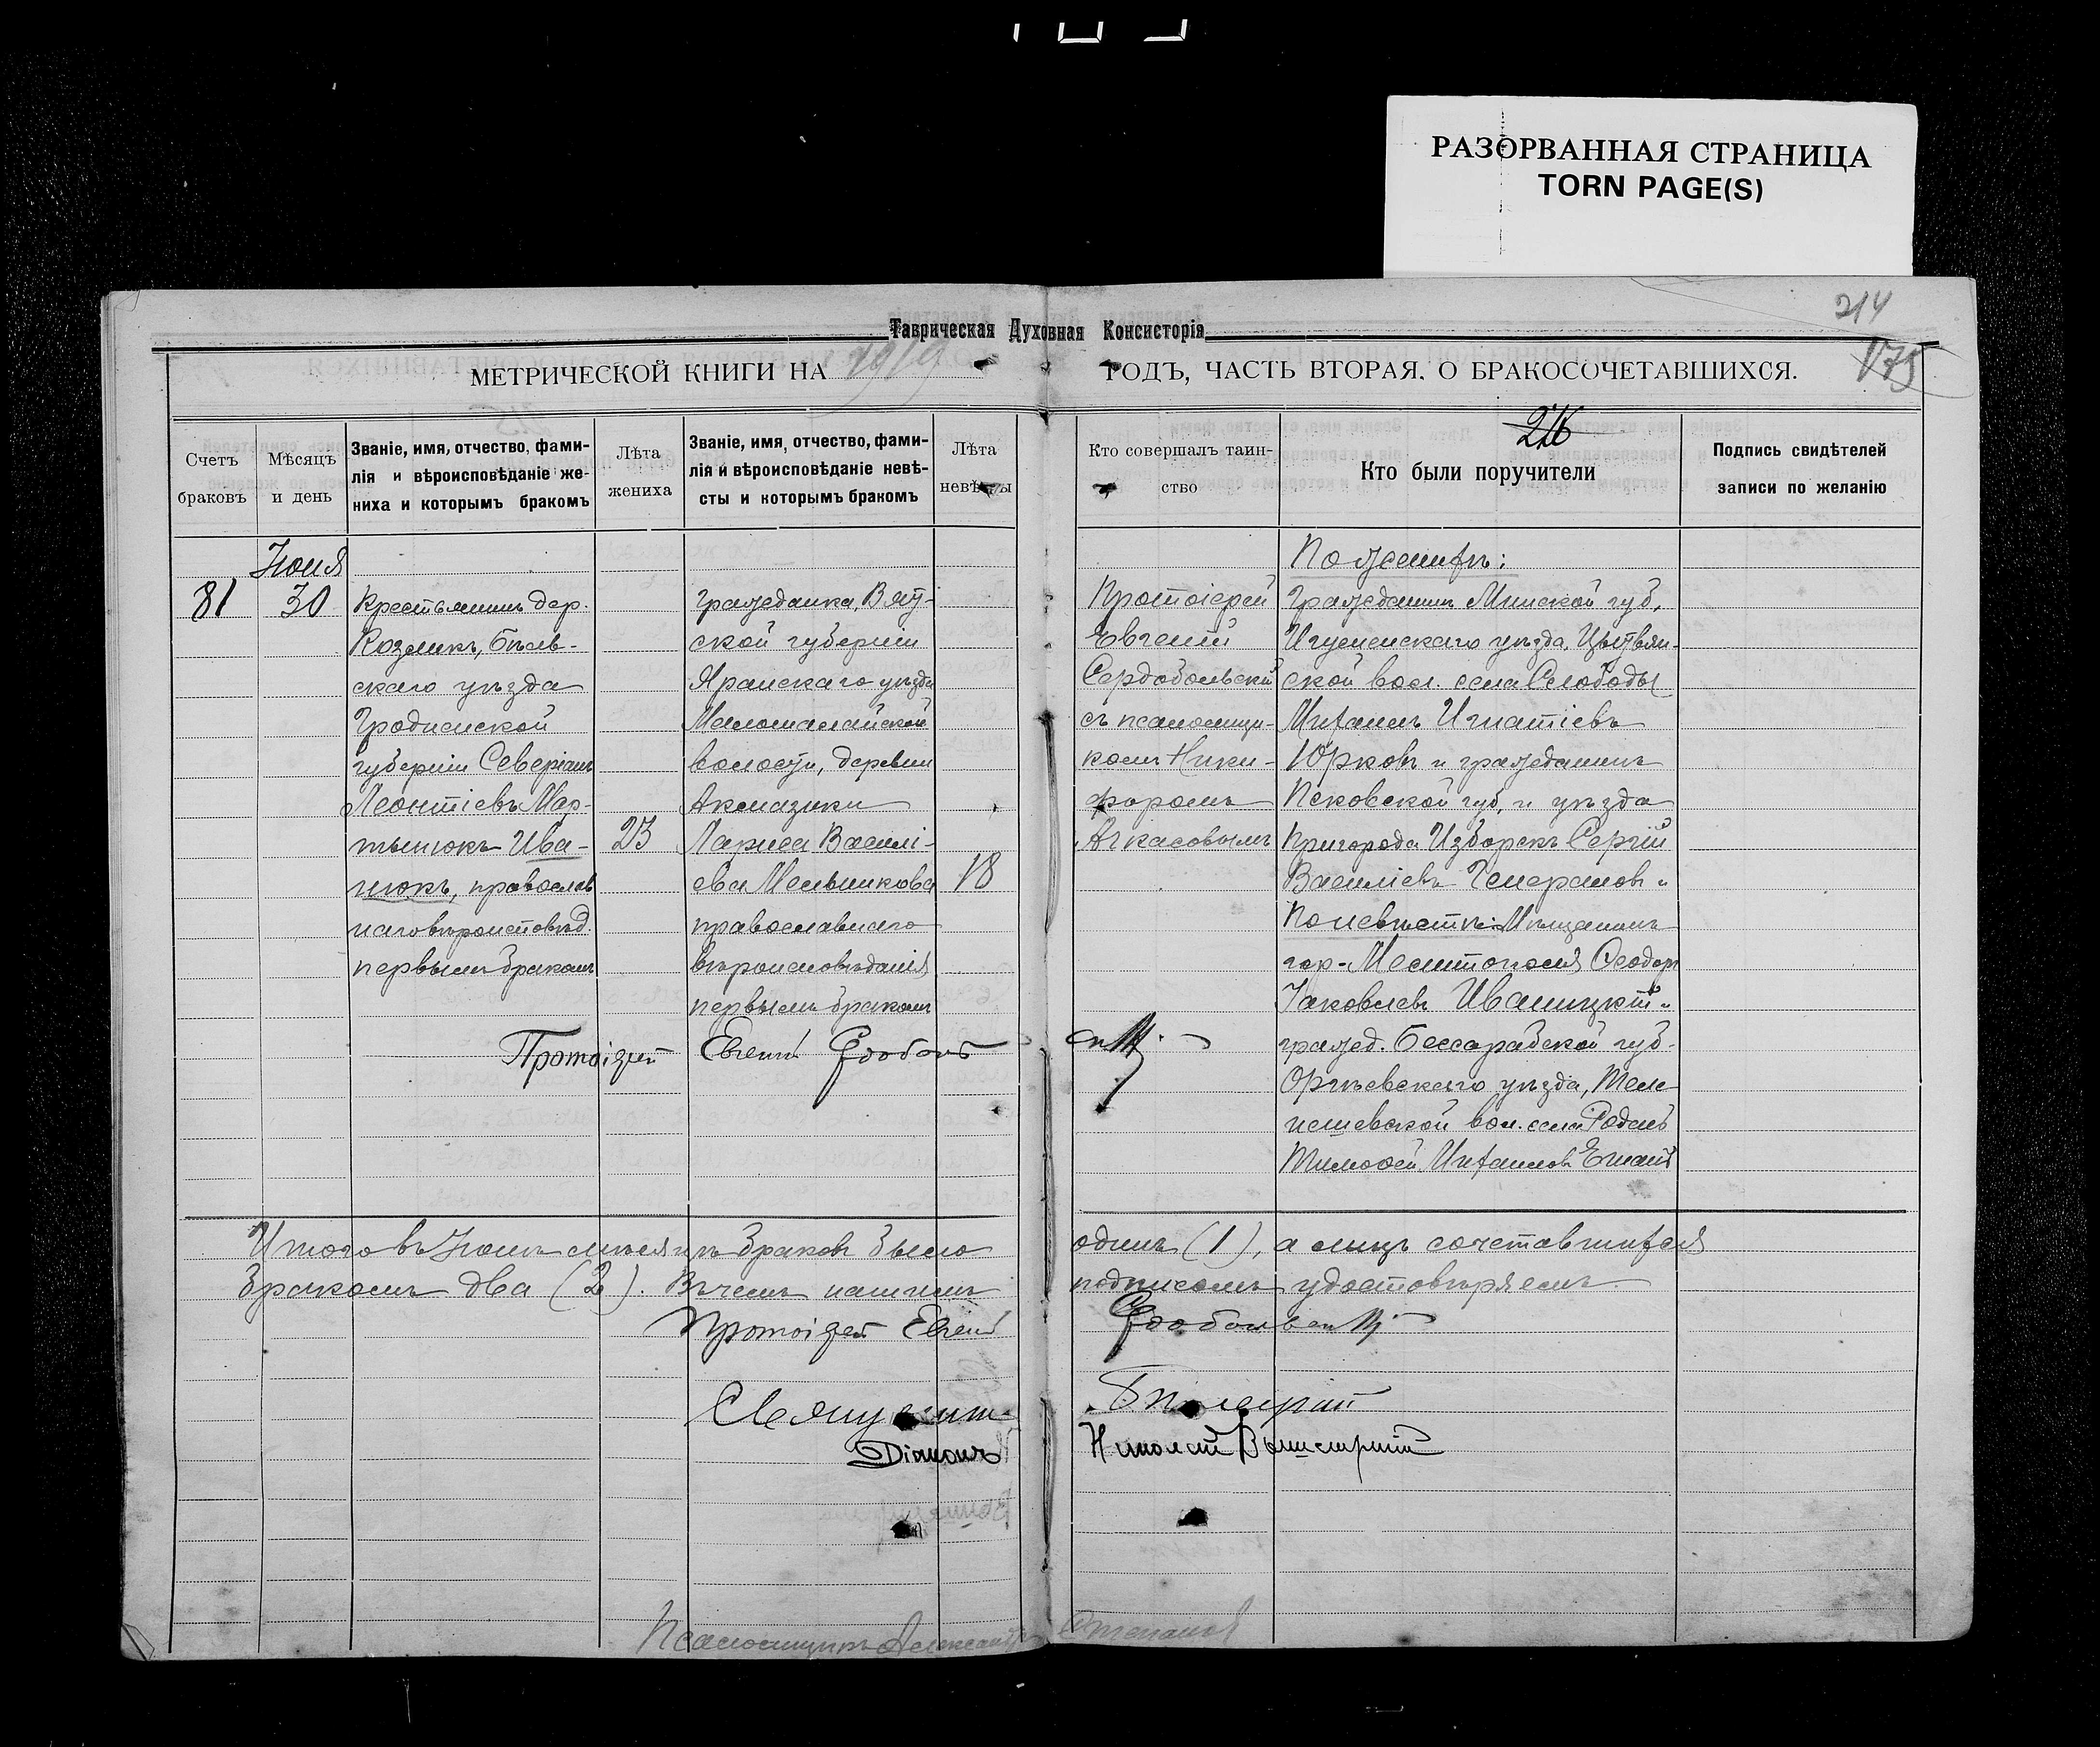 РАЗОРВАННАЯ СТРАНИЦА
TORN PAGE(S)
214
Таврическая Духовная Консисторія
МЕТРИЧЕСКОЙ КНИГИ НА 1919
ГОДЪ, ЧАСТЬ ВТОРАЯ, О БРАКОСОЧЕТАВШИХСЯ.
175
216
Счетъ
браковъ
Мѣсяцъ
и день
Званіе, имя, отчество, фами-
лія и вѣроисповѣданіе же-
ниха и которымъ бракомъ
Лѣта
жениха
Званіе, имя, отчество, фами-
лія и вѣроисповѣданіе невѣ-
сты и которымъ бракомъ
Лѣта
невѣсты
Кто совершалъ таин-
ство
Кто были поручители
Подпись свидѣтелей
записи по желанію
81
Іюня
30
Крестьянинъ дер.
Козлики, Бѣль-
скаго уѣзда
Гродненской
губерніи Северіанъ
Леонтіевъ Мар-
тынюкъ Ива-
нюкъ, православ
наго вѣроисповѣд.
первымъ бракомъ
23
гражданка Вят-
ской губерніи
Яранскаго уѣзда
волости, деревни
Лариса Василі-
ева Мельникова
православнаго
вѣроисповѣданія
первымъ бракомъ
18
Протоіерей
Евгеній
Сердобольскій
съ псаломщи-
комъ Ники-
форомъ
Аркасовымъ
По женихѣ:
Гражданинъ Минской губ.
Игуменскаго уѣзда, Цытвян-
ской вол. села Слободы
Михаилъ Игнатіевъ
Юрковъ и гражданинъ
Псковской губ. и уѣзда
Пригорода Изборскъ Сергій
Василіевъ Генераловъ и
По невѣстѣ: Мѣщанинъ
гор. Мелитополя Ѳеодоръ
Іаковлевъ Иваницкій и
гражд. Бессарабской губ.
Оргѣевскаго уѣзда, Теле
нешевской вол. села
Тимоѳей Михаиловъ
Протоіерей Евгеній
Итого въ Іюнѣ мѣсяцѣ браковъ было
одинъ (1), а лицъ сочетавшихся
бракомъ два (2). Въ чемъ нашимъ
подписомъ удостовѣряемъ
Протоіерей Евгеній
Священникъ
Діаконъ
Николай
Псаломщикъ Александръ
Степановъ